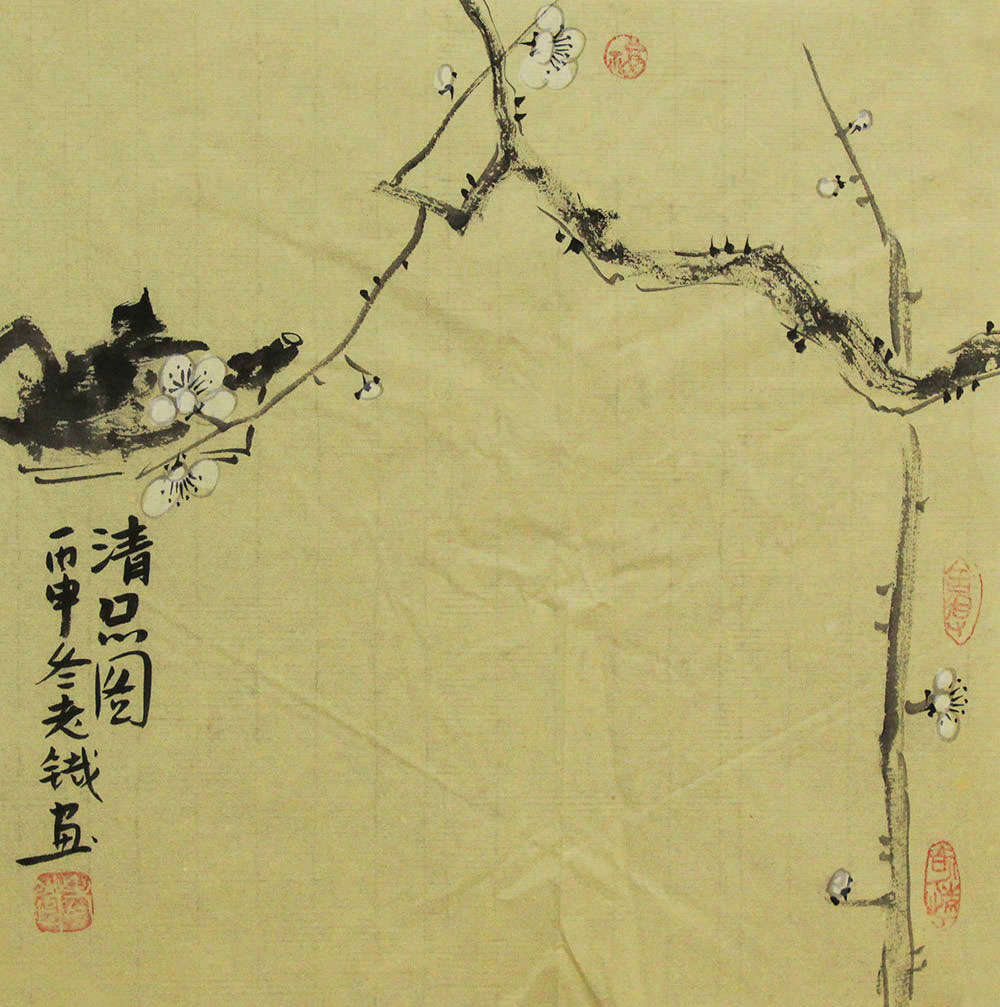 清品图
丙申冬老铁画